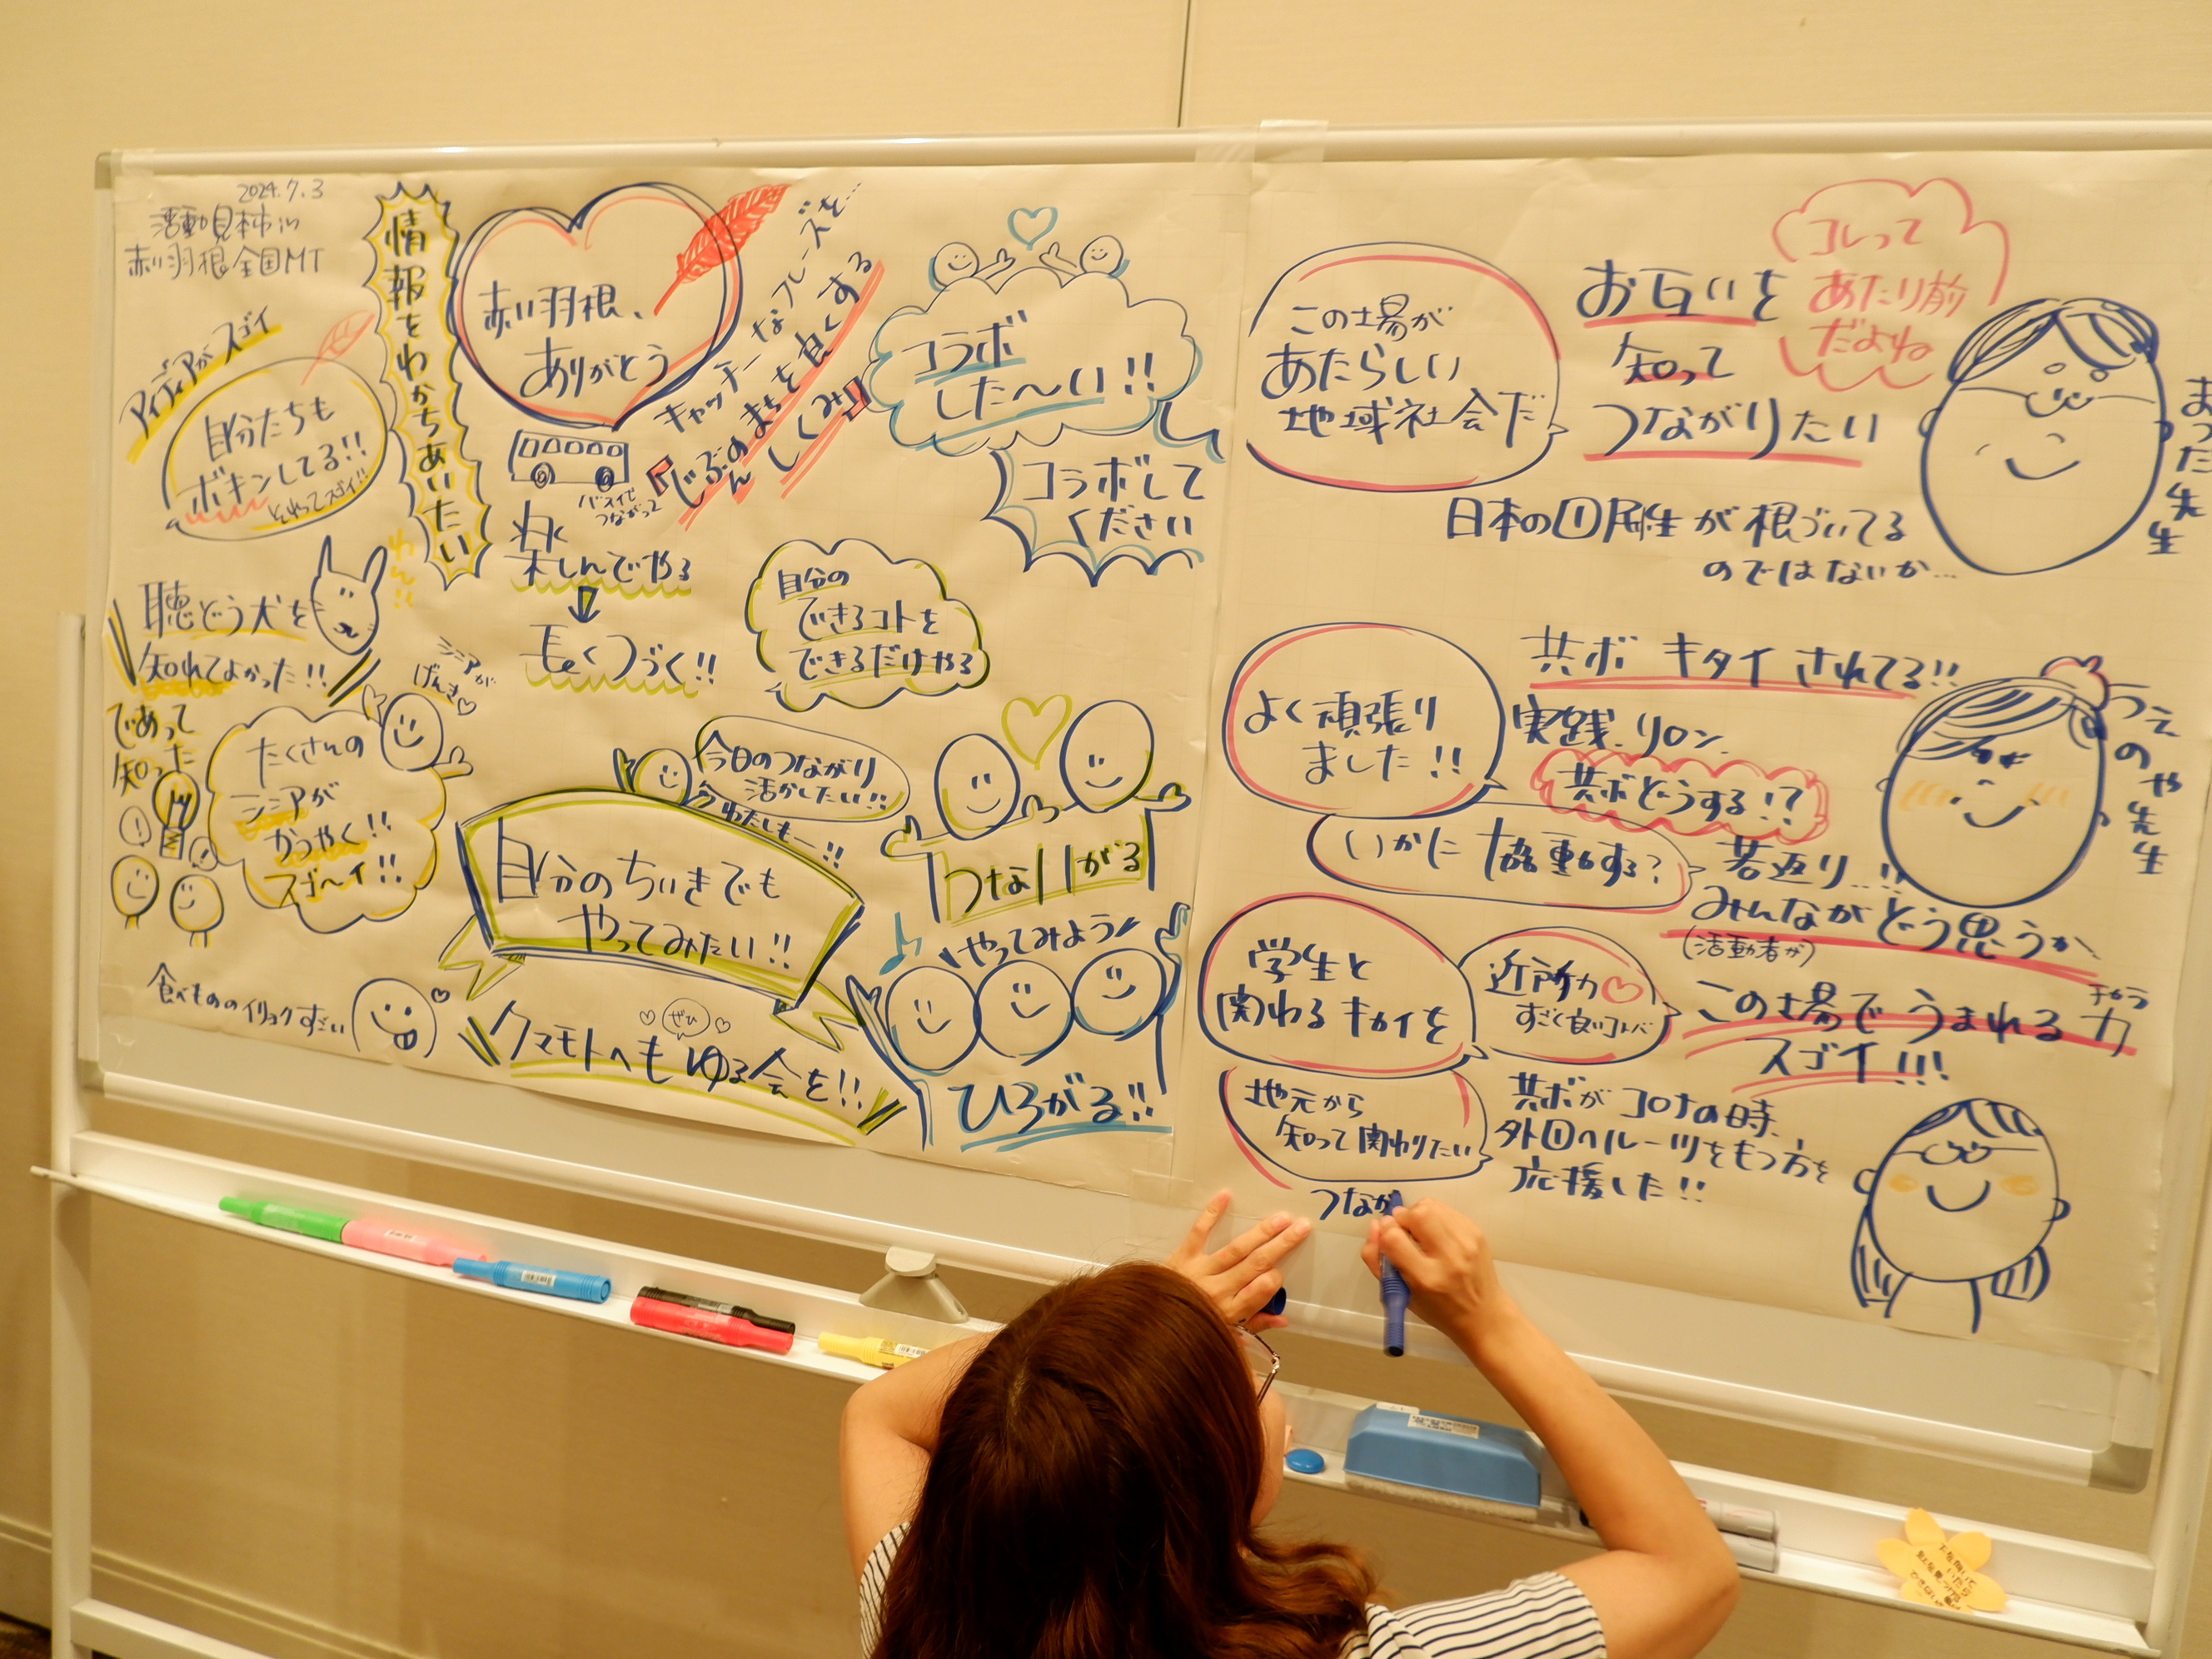 2024.7.3
活動見本市 in
赤い羽根全国MT
アイディアがスゴイ
自分たちも
ボキンしてる!!
それってスゴイ!!
情報をわかちあいたい
赤い羽根、
ありがとう
キャッチーなフレーズを…
『じぶんのまちを良くする
しくみ』
バスイで
つながって
楽しんでやる
長くつづく!!
コラボ
した〜い!!
コラボして
ください
自分の
できるコトを
できるだけやる
わん!!
聴どう犬を
知れてよかった!!
シニアが
げんき♡
であって
知った
たくさんの
シニアが
かつやく!!
スゴ〜イ!!
食べもののイリョクすごい
今日のつながり
活かしたい!!
わたしもー!!
自分のちいきでも
やってみたい!!
ぜひ
クマモトへもゆる会を!!
つながる
やってみよう
ひろがる!!
この場が
あたらしい
地域社会だ
お互いを
知って
つながりたい
コレって
あたり前
だよね
日本の国民性が根づいてる
のではないか…
まつだ先生
よく頑張り
ました!!
共ボ キタイされてる!!
実践.リロン.
共ボどうする!?
いかに協動する?
若返り…!!
みんながどう思うか
(活動者が)
つえのや先生
学生と
関わるキカイを
近所力♡
すごく良いコトバ
この場でうまれる力
チカラ
スゴイ!!!
地元から
知って関わりたい
共ボがコロナの時、
外国へルーツをもつ方を
応援した!!
つなが